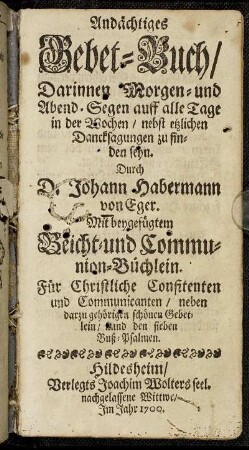 Andächtiges
Gebet-Buch/
Darinnen Morgen- und
Abend-Segen auff alle Tage
in der Wochen / nebst etzlichen
Dancksagungen zu fin-
den seyn.
Durch
D. Johann Habermann
von Eger.
Mit beygefügtem
Beicht- und Commu-
nion-Büchlein.
Für Christliche Confitenten
und Communicanten / neben
darzu gehörigen schönen Gebet-
lein / und den sieben
Buß-Psalmen.
Hildesheim /
Verlegts Joachim Wolters seel.
nachgelassene Wittwe /
Im Jahr 1700.